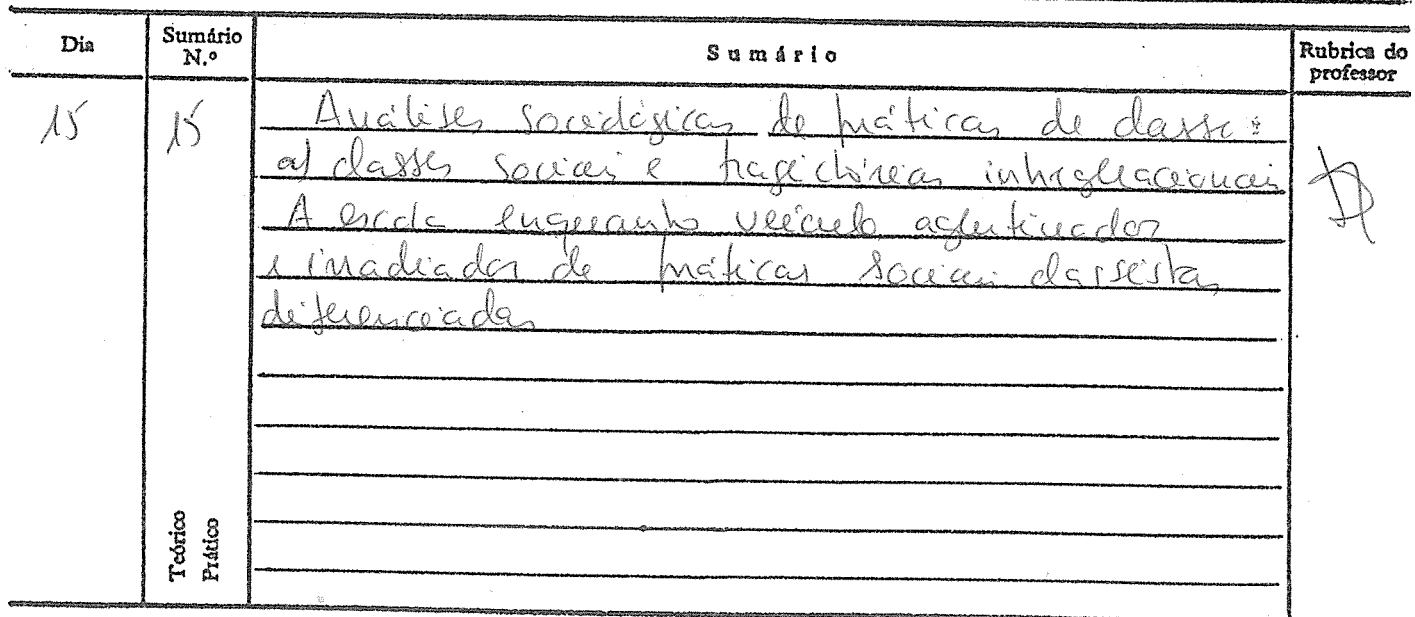 Dia
Sumário
N.º
Sumário
Rubrica do
professor
15
15
Análises sociológicas de práticas de classe:
a) classes sociais e trajectórias intergeracionais
A escola enquanto veículo aglutinador
e irradiador de práticas sociais classistas
diferenciadas
Teórico
Prático